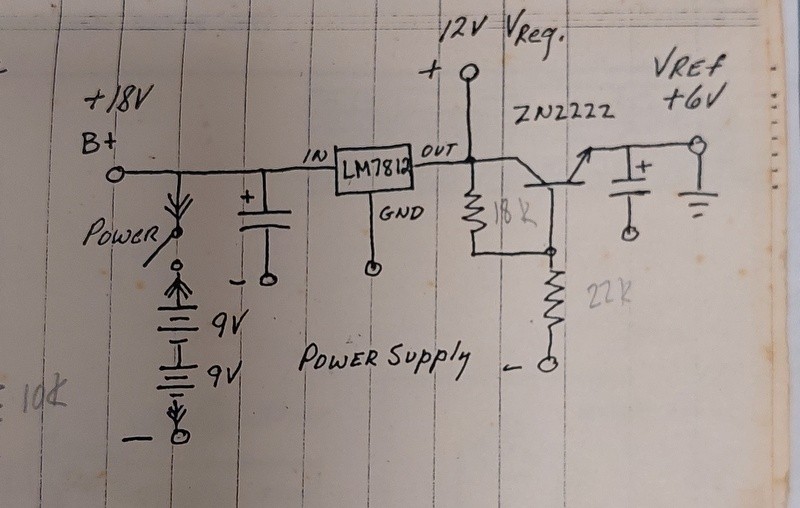 12V VReg.
+
+18V
B+
VREF
+6V
2N2222
IN
LM7812
OUT
+
+
18K
GND
POWER
-
22K
9V
POWER SUPPLY
-
9V
10K
-